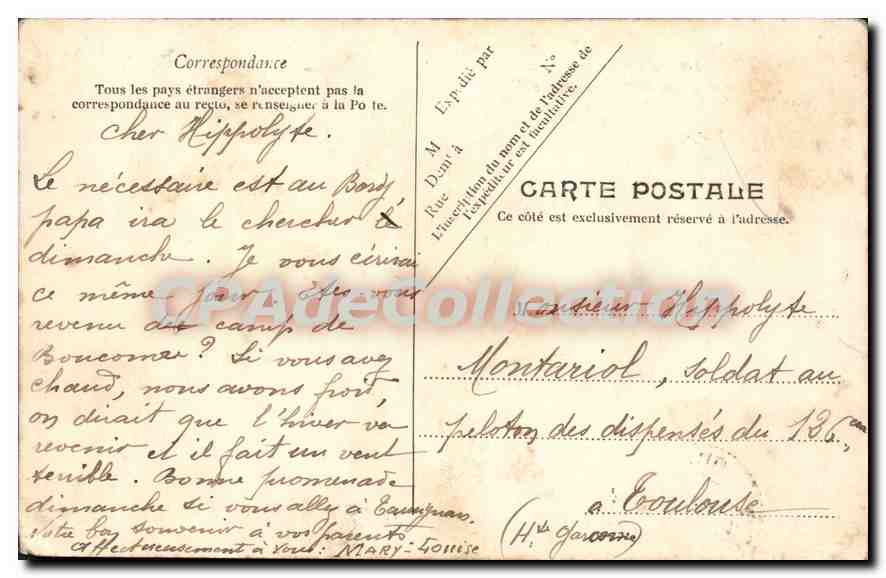 Correspondance
Tous les pays étrangers n'acceptent pas la
correspondance au recto, se renseigner à la Poste.
cher Hippolyte.
Le nécessaire est au Bord
papa ira le chercher
dimanche. Je vous écrirai
ce même jour. êtes-vous
revenu de camp de
? Si vous avez
chaud, nous avons froid
on dirait que l'hiver va
revenir et il fait un vent
terrible. Bonne promenade
dimanche si vous allez à
Votre bon souvenir à vos parents
affectueusement à vous: Mary-Louise
Expédié par
M
Demt à
Rue
No
L'inscription du nom et de l'adresse de
l'expéditeur est facultative.
CARTE POSTALE
Ce côté est exclusivement réservé à l'adresse.
Monsieur Hippolyte
Montariol, soldat au
peloton des dispensés du 136em
à Toulouse
(Hte Garonne)
CPAdeCollection